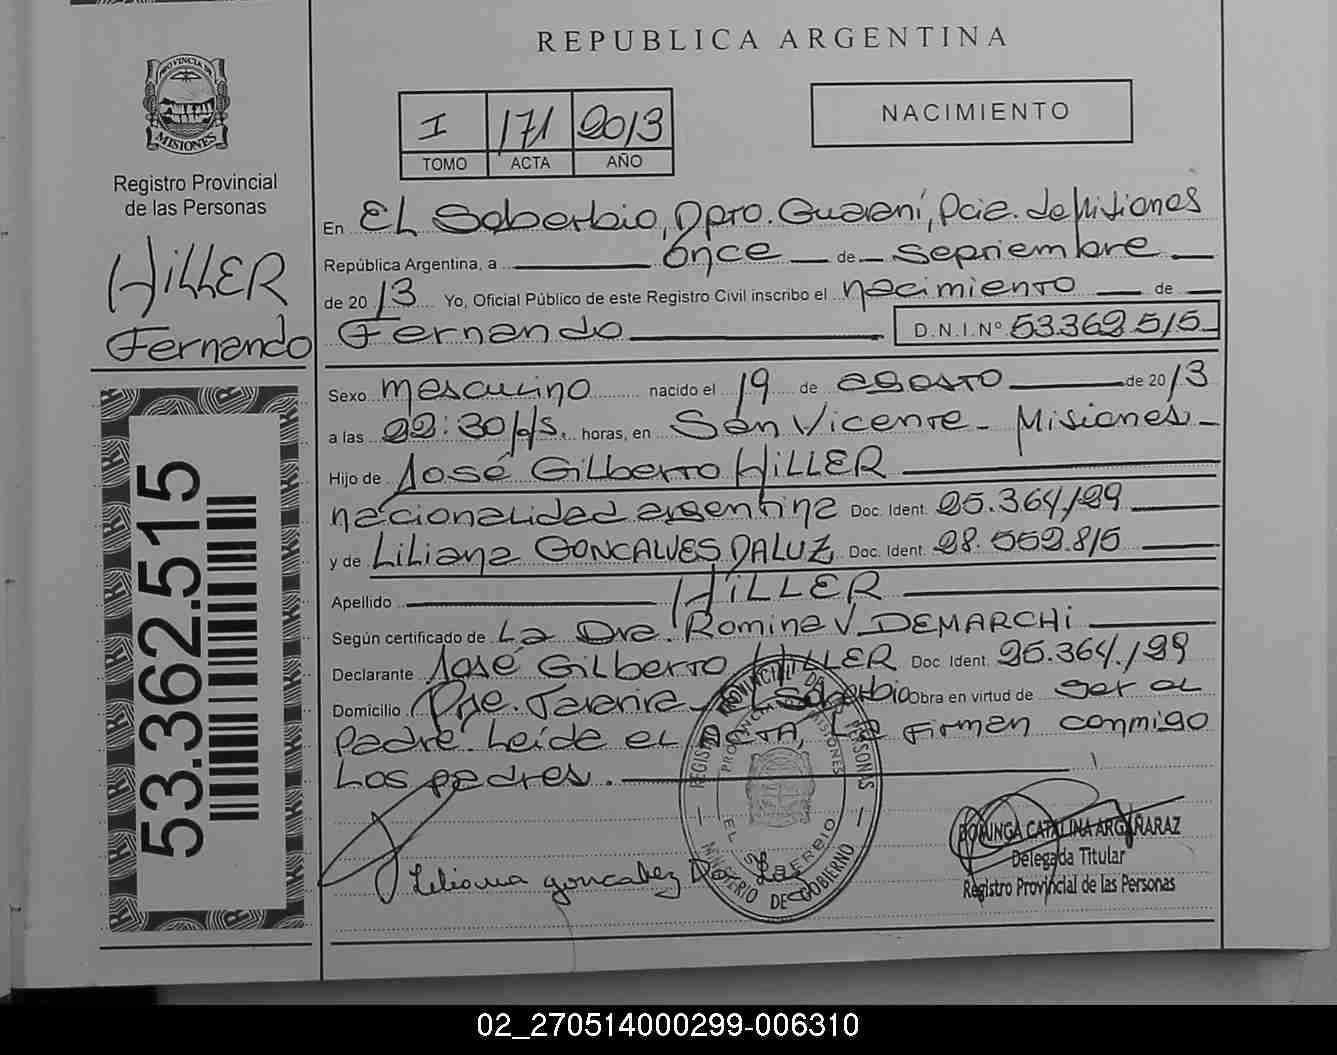 REPUBLICA ARGENTINA
PROVINCIA DE
MISIONES
Registro Provincial
de las Personas
HILLER
Fernando
53.362.515
I 171 2013
TOMO ACTA AÑO
NACIMIENTO
En EL Soberbio, Dpto. Guaraní, Pcia. de Misiones
República Argentina, a once de septiembre
de 2013 Yo, Oficial Público de este Registro Civil inscribo el nacimiento de
Fernando D.N.I.Nº 53.362.515
Sexo masculino nacido el 19 de agosto de 2013
a las 22:30 Hs. horas, en San Vicente - Misiones -
Hijo de José Gilberto HILLER
nacionalidad argentina Doc. Ident. 25.364.199
y de Liliana GONCALVES DALUZ Doc. Ident. 28.552.815
Apellido HILLER
Según certificado de La Dra. Romina V. DEMARCHI
Declarante José Gilberto HILLER Doc. Ident. 25.364.199
Domicilio Pje. El Soberbio Obra en virtud de ser el
padre. Leída el ACTA, La firman conmigo
Los padres.
Liliana goncalvez Da Luz
REGISTRO PROVINCIAL DE LAS PERSONAS
PROVINCIA DE MISIONES
EL SOBERBIO
MINISTERIO DE GOBIERNO
DOMINGA CATALINA ARGAÑARAZ
Delegada Titular
Registro Provincial de las Personas
02_270514000299-006310